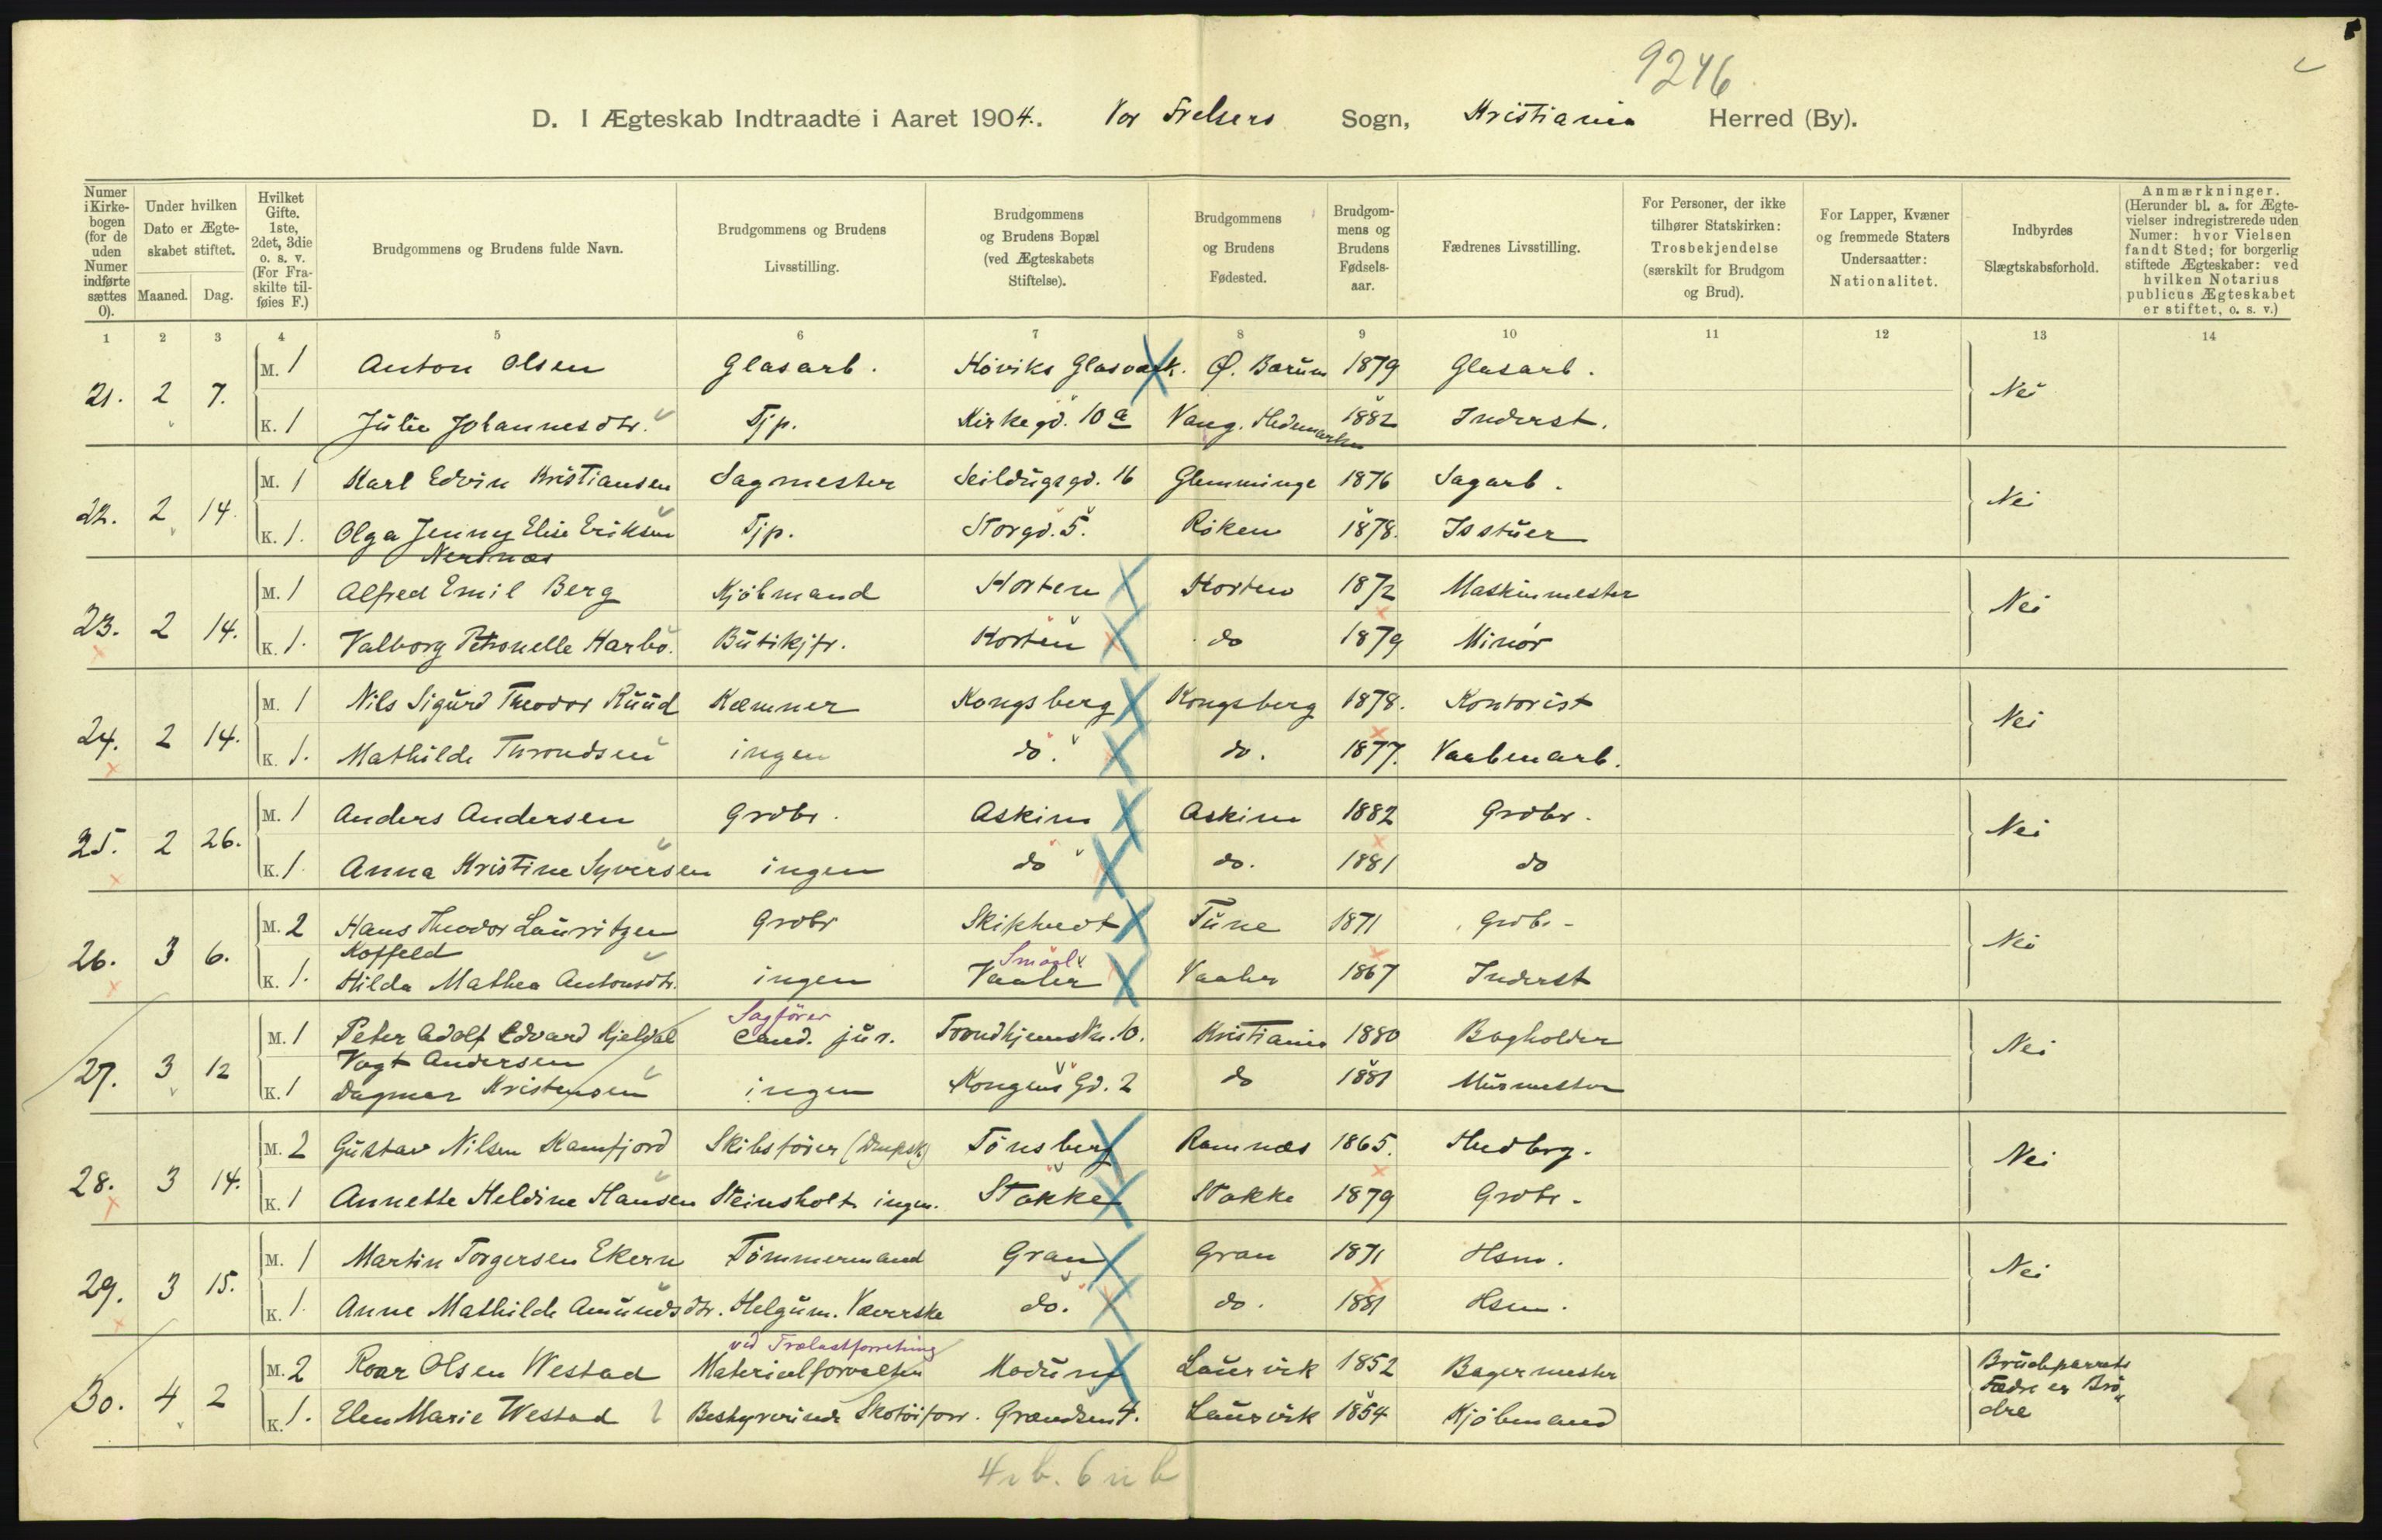 9246
D. I Ægteskab Indtraadte i Aaret 1904. Vor Frelsers Sogn, Kristiania Herred (By).
Numer i Kirkebogen (for de uden Numer indførte sættes 0). Under hvilken Dato er Ægteskabet stiftet. Maaned. Dag. Hvilket Gifte. 1ste, 2det, 3die o. s. v. (For Fraskilte tilføies F.) Brudgommens og Brudens fulde Navn. Brudgommens og Brudens Livsstilling. Brudgommens og Brudens Bopæl (ved Ægteskabets Stiftelse). Brudgommens og Brudens Fødested. Brudgommens og Brudens Fødselsaar. Fædrenes Livsstilling. For Personer, der ikke tilhører Statskirken: Trosbekjendelse (særskilt for Brudgom og Brud). For Lapper, Kvæner og fremmede Staters Undersaatter: Nationalitet. Indbyrdes Slægtskabsforhold. Anmærkninger. (Herunder bl. a. for Ægtevielser indregistrerede uden Numer: hvor Vielsen fandt Sted; for borgerlig stiftede Ægteskaber: ved hvilken Notarius publicus Ægteskabet er stiftet, o. s. v.)
1 2 3 4 5 6 7 8 9 10 11 12 13 14
21. 2 7. M. 1 Anton Olsen Glasarb. Høviks Glasværk. Ø. Bærum 1879 Glasarb. Nei
K. 1 Julie Johannesdtr. Tjp. Kirkegd. 10 a Vang. Hedemarken 1882 Inderst.
22. 2 14. M. 1 Karl Edvin Kristiansen Sagmester Seildugsgd. 16 Glemminge 1876 Sagarb. Nei
K. 1. Olga Jenny Elise Eriksen Tjp. Storgd. 5. Røken 1878. Isstuer
Nersnæs
23. 2 14. M. 1 Alfred Emil Berg Kjøbmand Horten Horten 1872 Maskinmester Nei
K. 1. Valborg Petronelle Harbo. Butikjfr. Horten do 1879 Minør
24. 2 14. M. 1 Nils Sigurd Theodor Ruud Kæmner Kongsberg Kongsberg 1878. Kontorist Nei
K. 1. Mathilde Throndsen ingen do. do. 1877. Vaabenarb.
25. 2 26. M. 1 Anders Andersen Grdbr. Askim Askim 1882 Grdbr. Nei
K. 1 Anna Kristine Syversen ingen do do. 1881 do
26. 3 6. M. 2 Hans Theodor Lauritzen Grdbr Skiptvedt Tune 1871 Grdbr. Nei
Koffeld Smaal.
K. 1. Hilda Mathea Antonsdtr. ingen Vaaler Vaaler 1867 Inderst
Sagfører
27. 3 12 M. 1 Peter Adolf Edvard Kjeldal cand. jur. Trondhjemsvn. 10. Kristiania 1880 Bogholder Nei
Vogt Andersen
K. 1 Dagmar Kristensen ingen Kongens Gd. 2 do 1881 Murmester
28. 3 14. M. 2 Gustav Nilsen Kamfjord Skibsfører (Dmpsk) Tönsberg Ramnæs 1865. Hudbrg. Nei
K. 1 Annette Heldine Hansen Steinsholt ingen. Stokke Stokke 1879 Grdbr.
29. 3 15. M. 1 Martin Torgersen Ekern Tømmermand Gran Gran 1871 Hsm. Nei
K. 1. Anne Mathilde Amundsdtr. Helgum. Væverske do. do. 1881 Hsm.
ved Trælastforretning
30. 4 2 M. 2 Roar Olsen Westad Materialforvalter Modum Laurvik 1852 Bagermester Brudeparrets
Fædre er Brødre
K. 1. Elen Marie Westad Bestyrerinde Skotøiforr. Grændsen 4. Laurvik 1854 Kjøbmand
4 i b. 6 u b